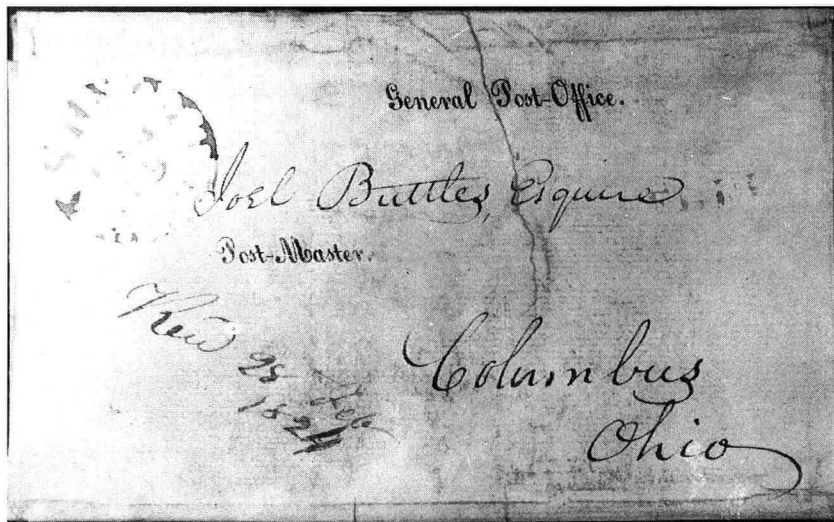 General Post-Office.
Joel Buttles, Esquire
Post-Master.
Recd 28 Feb
1824
Columbus
Ohio